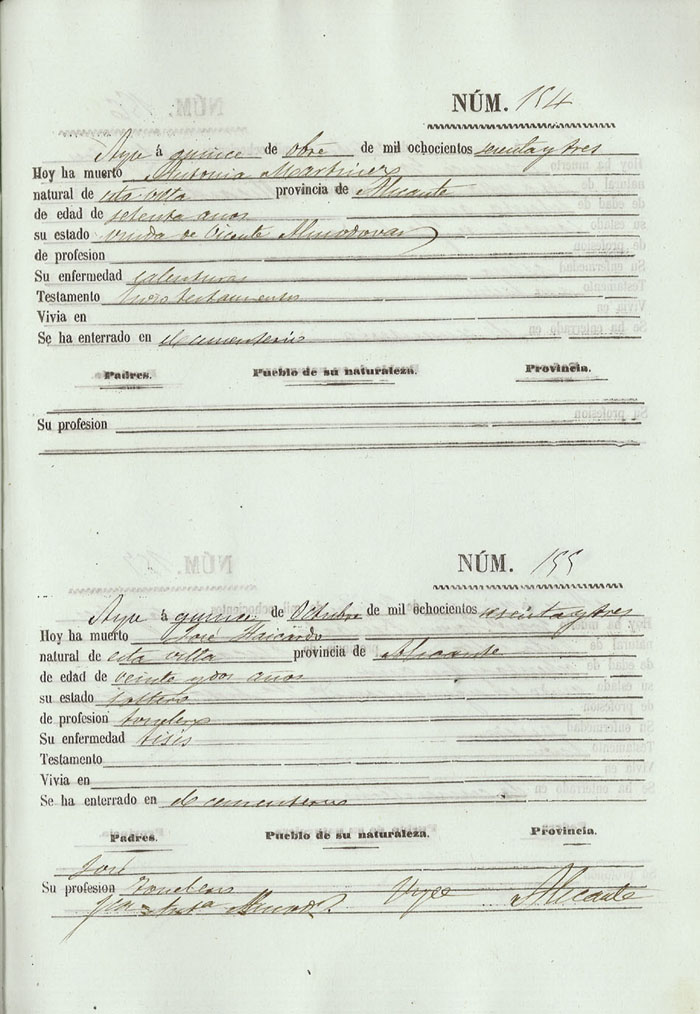 NÚM. 154
Aspe á quince de 8bre de mil ochocientos sesenta y tres
Hoy ha muerto Antonia Martinez
natural de esta villa provincia de Alicante
de edad de setenta anos
su estado viuda de Vicente Almodovar
de profesion
Su enfermedad calenturas
Testamento hizo testamento
Vivia en
Se ha enterrado en el cementerio
Padres. Pueblo de su naturaleza. Provincia.
Su profesion
NÚM. 155
Aspe á quince de Octubre de mil ochocientos sesenta y tres
Hoy ha muerto José
natural de esta villa provincia de Alicante
de edad de veinte y dos anos
su estado soltero
de profesion tonelero
Su enfermedad tisis
Testamento
Vivia en
Se ha enterrado en el cementerio
Padres. Pueblo de su naturaleza. Provincia.
José
Su profesion
Alicante